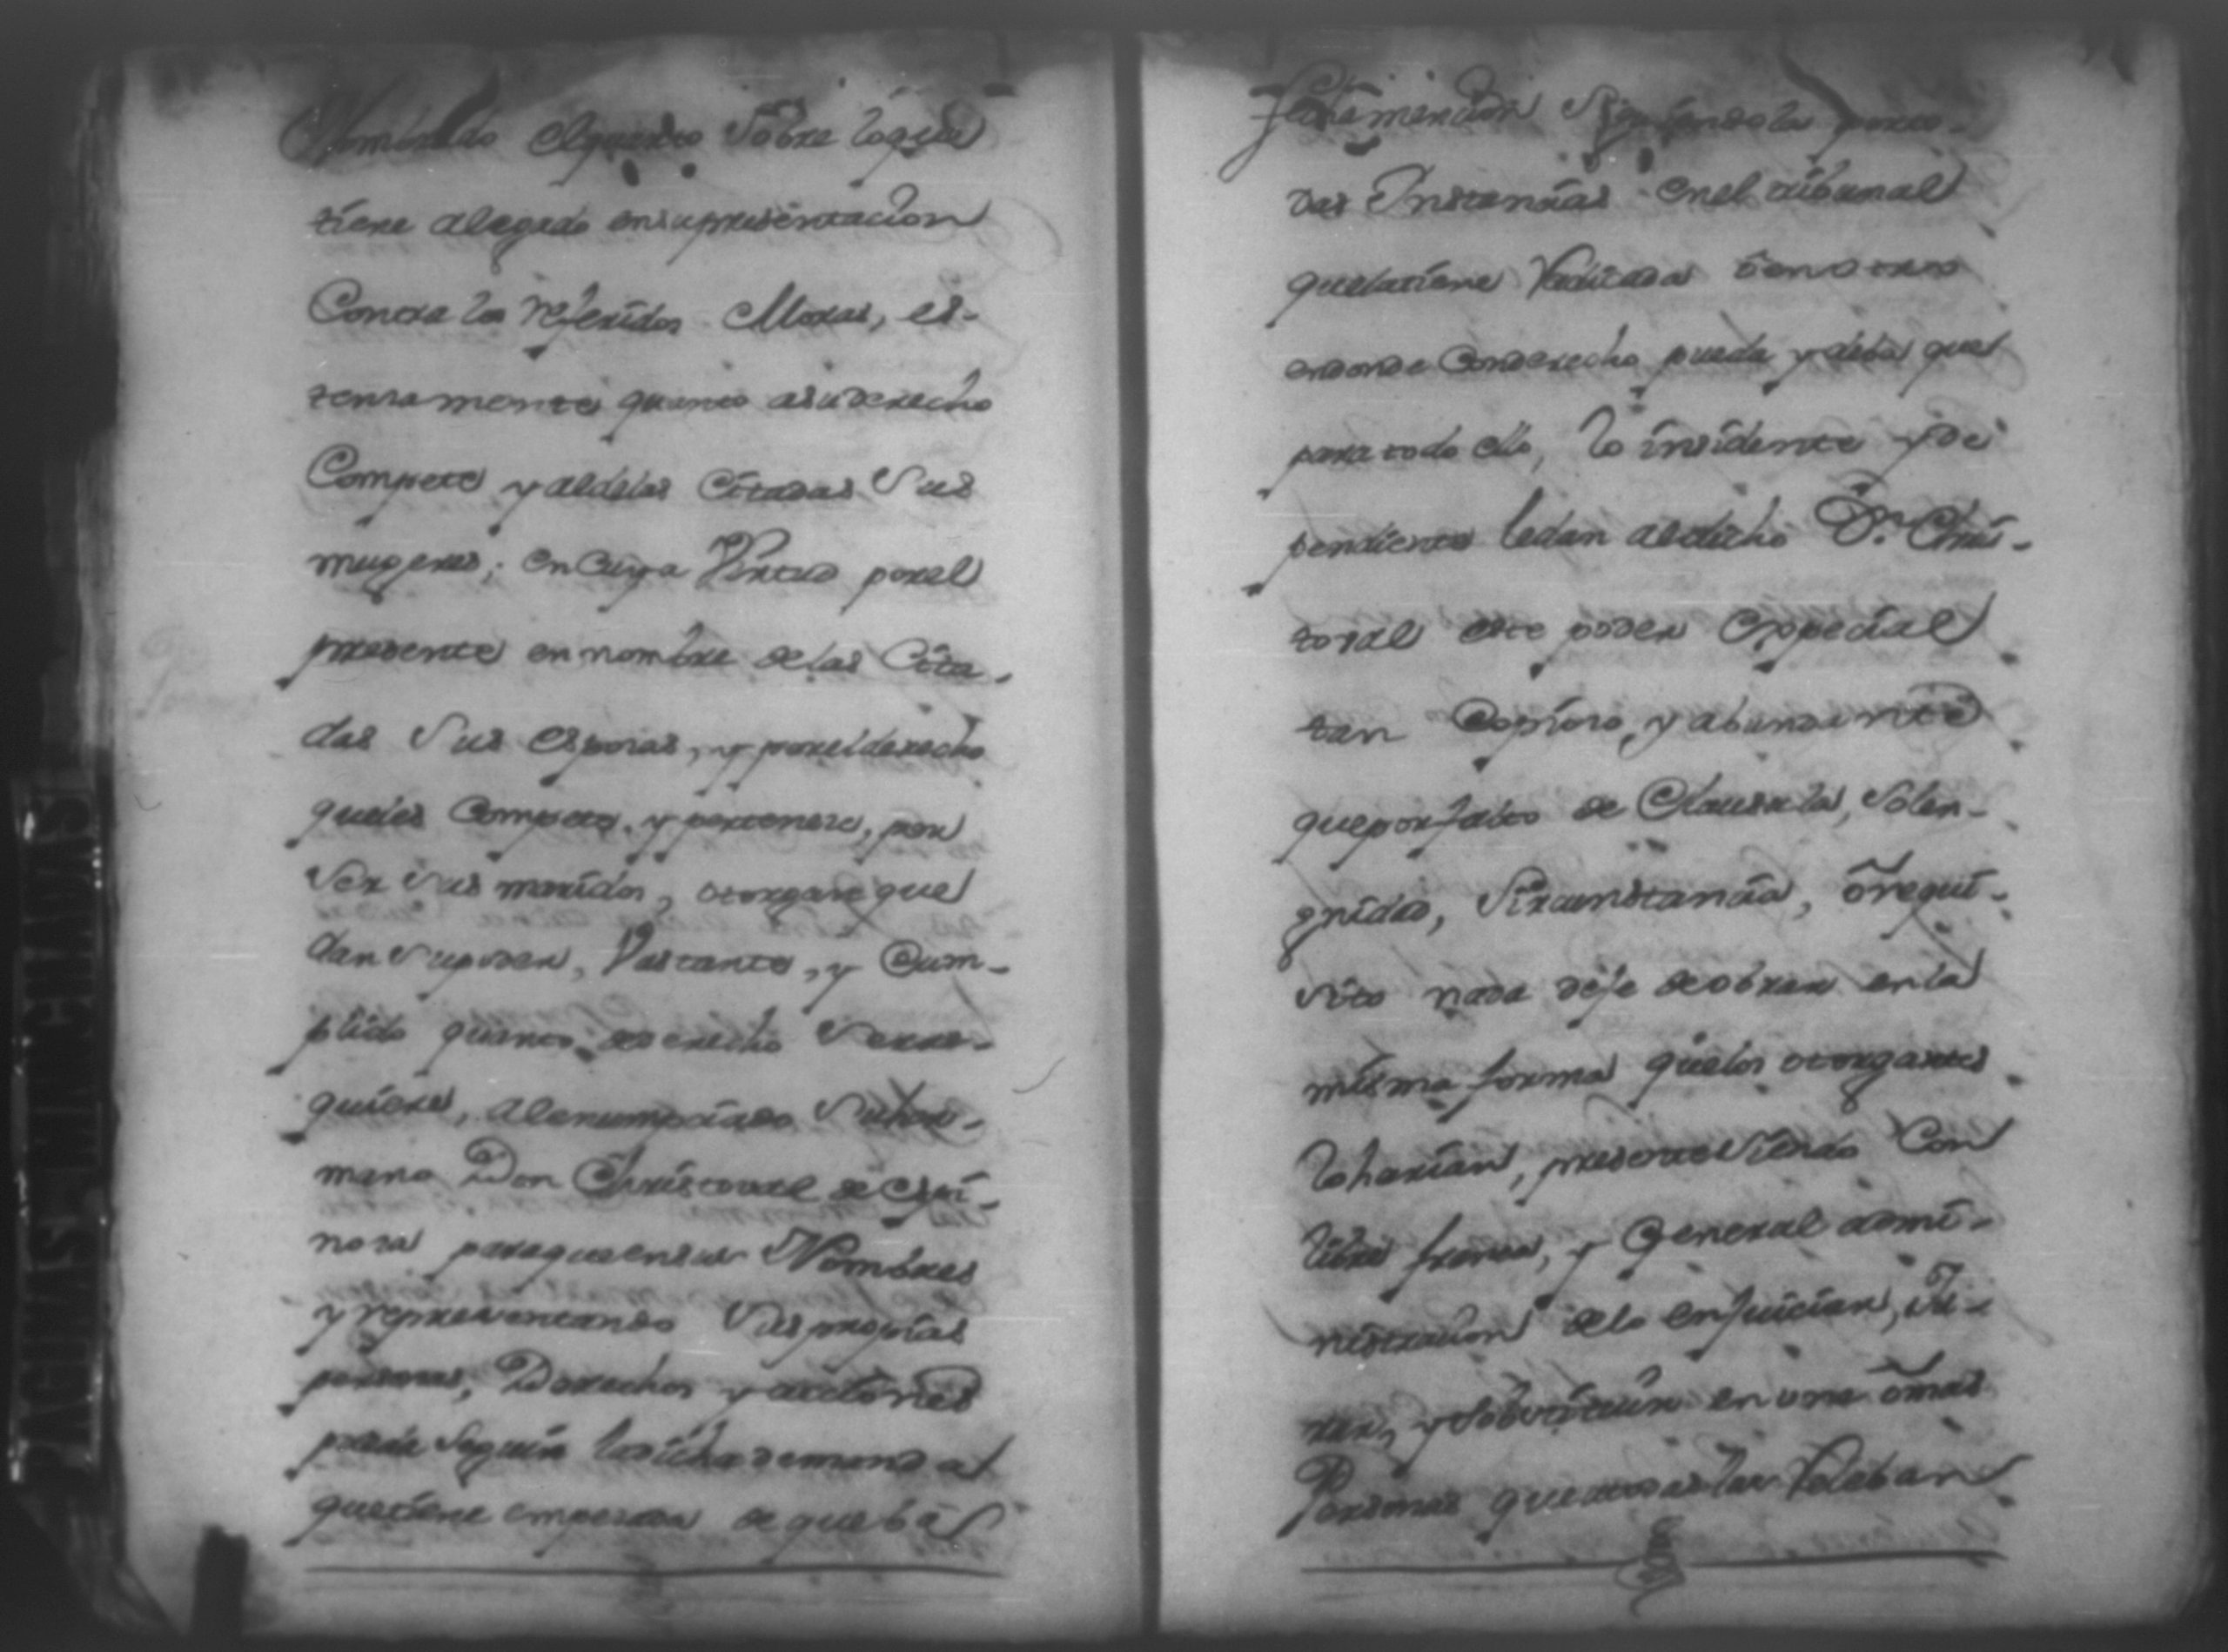 Nombrado el qual Sobre loque
tiene alegado ensupresentacion
Contra los referidos Moras, es-
tensamente quanto asuderecho
Compete y aldelas Citadas Sus
mugeres; en Cuya Virtud porel
presente en nombre delas Cita-
das Sus esposas, y porelderecho
queles Compete, y pertenese, por
Ser Sus maridos, otorgan que
dan Supoder, Vastante, y Cum-
plido quanto dederecho Serre-
quiere, alenumpciado Suher-
mano Don Christoval de Espi-
nosa paraqueensus Nombres
y representando Sus propias
personas, Derechos y acciones
pueda Seguir ladicha demanda
quetiene empesada de queba
fha mencion Siguiendola porto-
das Instancias enel tribunal
quelatiene Radicada ô en otro
endonde Conderecho pueda y deba que
para todo ello, lo insidente y de
pendiente ledan aldicho Dn. Chris-
toval este poder especial
tan Copioso, y abundante
queporfalta de Clausula, Solen-
gnidad, Sircunstancia, ô requi-
sito nada deje deobrar en la
misma forma quelos otorgantes
loharian, presente Siendo Con
libre franca, y General admi-
nistracion delo enjuiciar, Ju-
rar, y Sobstituir en una ô mas
Personas que atodas las Releban